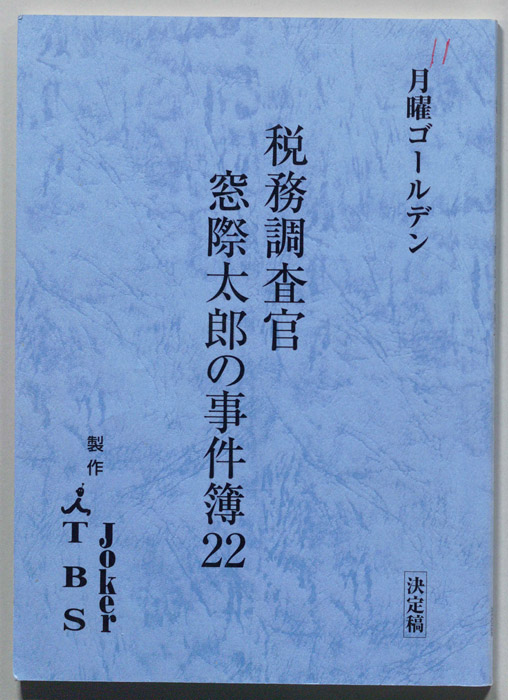 11
月曜ゴールデン
税務調査官
窓際太郎の事件簿22
決定稿
製作
TBS
Joker